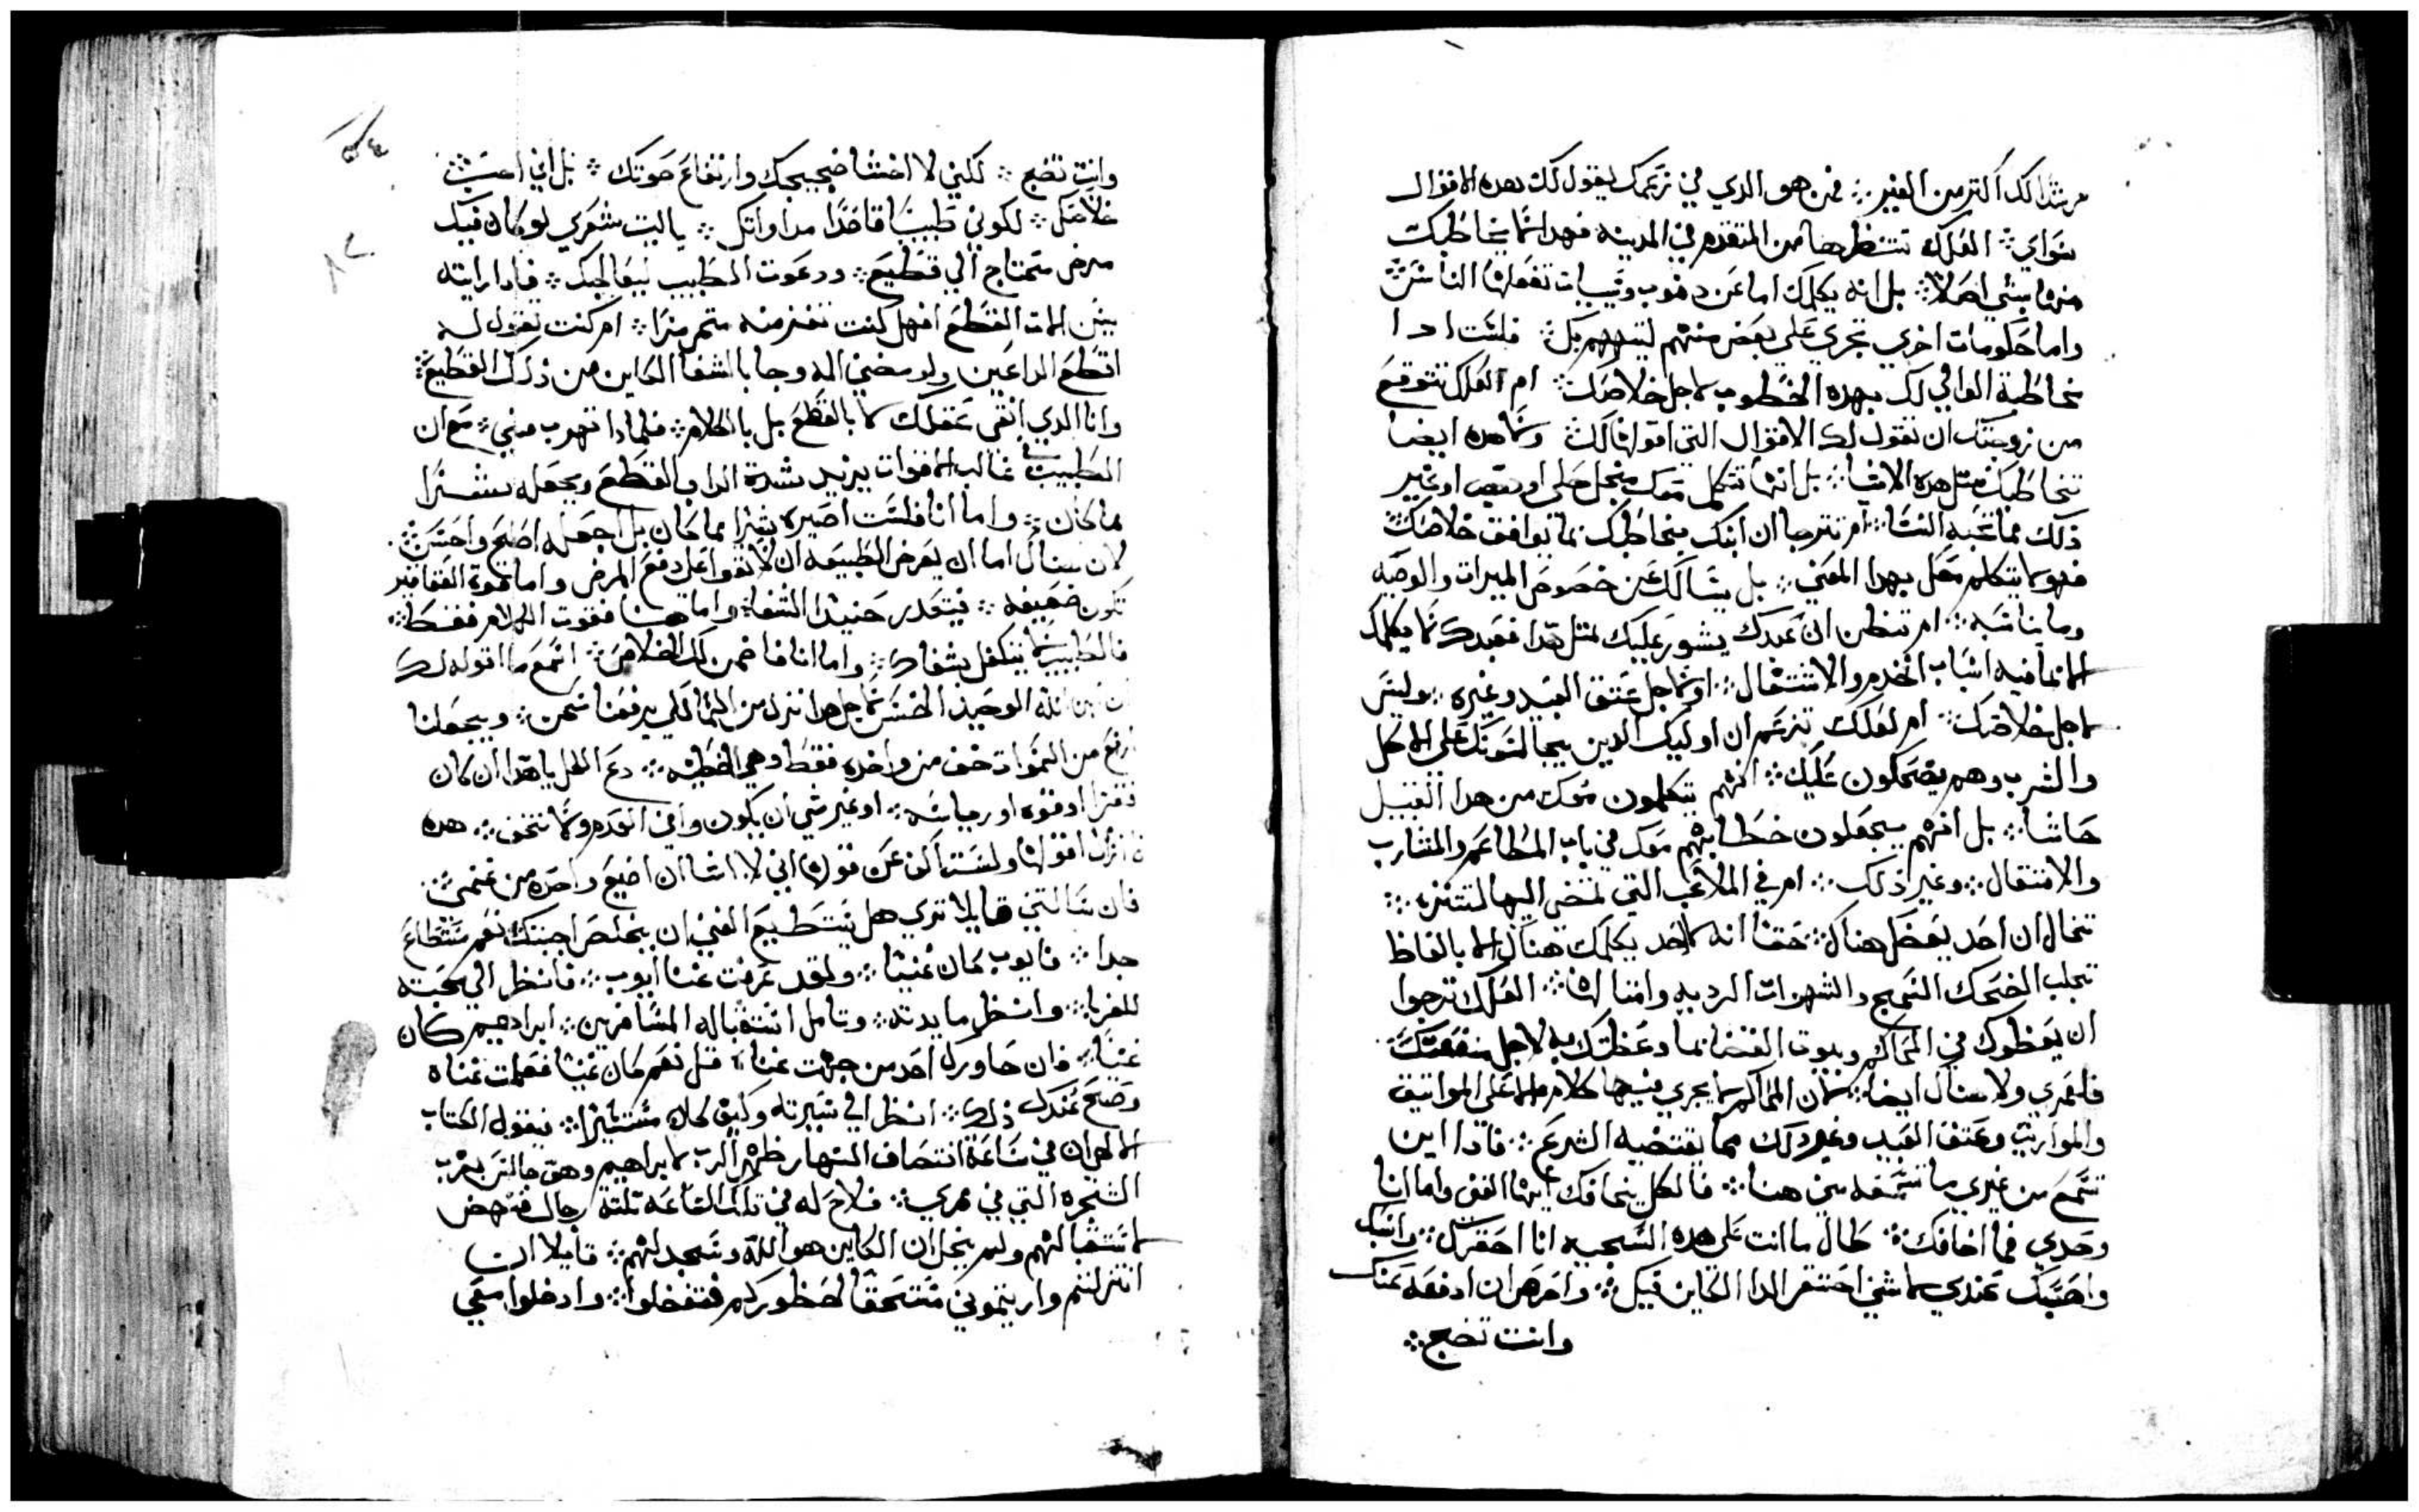 مرشدا لك اكثر من الغير ܀ فمن هو الدي في زعمك يقول لك هده الاقوال
سواي ܀ العلك تنتظرها من المتقدم في المدينه فهدا لا يخاطبك
منها بشي اصلا ܀ بل انه يكلمك اما عن دهوب وتيابات تفعلها الناس ܀
واما حكومات اخري تجري علي بعض منهم ليتهم بك ܀ فلست ادا
مخاطبة الوالي لك بهده الخطوب لاجل خلاصك ܀ ام العلك تتوقع
من زوجتك ان تقول لك الاقوال التي اقولها لك ولا هده ايضا
تخاطبك بمثل هده الاشيا ܀ بل انها تتكلم معك من اجل حلي او قميص او غير
ذلك مما تحبه النسا ܀ ام تترجا ان ابنك يخاطبك بما يوافق خلاصك ܀
فهو لا يتكلم معك بهدا المعني ܀ بل يسالك عن خصوص الميرات والوصيه
وما يناسبه ܀ ام تنظن ان عبدك يشور عليك بمثل هدا فعبدك لا يكلمك
الا بما فيه اسباب الخدم والاشتغال ܀ او لاجل عتق العبيد وغيره ܀ وليس
لاجل خلاصك ܀ ام لعلك تزعم ان اوليك الدين يجالسونك علي الاكل
والشرب وهم يضحكون عليك ܀ انهم يتكلمون معك من هدا القبيل
حاشا ܀ بل انهم يجعلون خطابهم معك في باب المطاعم والمشارب
والانتقال ܀ وغير ذلك ܀ ام في الملاعب التي تمضي اليها لتتنزه ܀
تخال ان احد يعضك هناك ܀ حقا انه لا احد يكلمك هناك الا بالفاظ
تجلب الضحك السمج والشهوات الرديه وامثالها ܀ العلك ترجوا
ان يعظوك في المحاكم وبيوت القضا بما وعظتك به لاجل منفعتك
فلعمري ولا هناك ايضا ܀ لان المحاكم لا يجري فيها كلام الا علي المواتيق
والمواريث وعتق العبيد وغير ذلك مما يقتضيه الشرع ܀ فادا اين
تسمع من غيري ما تسمعه مني هنا ܀ فالكل يخافك ايها الغني واما انا
وحدي فما اخافك ܀ طال ما انت علي هده السجيه انا احقرك ܀ واسبك
واحسبك عندي لا شي احتقر الدا الكاين فيك ܀ واحرص ان ادفعه عنك
وانت تضج ܀
وانت تضج ܀ لكني لا اخشا ضجيجك وارتفاع صوتك ܀ بل اني احب ܀
خلاصك ܀ لكوني طبيبا قاصدا مداواتك ܀ يا ليت شعري لو كان فيك
مرض محتاج الي قطيع ܀ ودعوت الطبيب ليعالجك ܀ فادا رايته
بيدن الات القطع افهل كنت تنفر منه متمرمرا ܀ ام كنت تقول له
اقطع الدا عني ولو مضني الم وجا بالشفا الكاين من ذلك القطيع ܀
وانا الدي انقي عقلك لا بالقطع بل بالكلام ܀ فلمادا تهرب مني ܀ مع ان
الطبيب في غالب الاقوات يزيد شدة الدا بالقطع ويجعله اشرا
ما كان ܀ واما انا فلست اصيره شرا مما كان بل اجعله اصلح واحسن ܀
لان هناك اما ان يعرض الطبيعه ان لا تقوا علي دفع المرض واما قوة العقاقير
تكون ضعيفه ܀ فيتعدر حنيدا الشفا ܀ واما هنا فقوت الكلام فقط ܀
فالطبيب لا يتكفل بشفاك ܀ واما انا فاضمن لك الخلاص ܀ اسمع ما اقوله لك
ان ابن الله الوحيد الجنس لاجل هدا نزل من السما لكي يرفعنا نحن ܀ ويجعلنا
ارفع من السموات خف من واحده فقط وهي الخطيه ܀ دع الكل يا هدا ان كان
فقرا او قوه او رياسه ܀ او غير شي ان يكون واتي العدم ولا تخف ܀ هده
لا ازال اقولها ولست اكف عن قولي اني لا اشا ان اضيع واحده من غنمي ܀
فان سالتني قايلا تري هل يستطيع الغني ان يخلص اجبتك نعم مستطاع
جدا ܀ فايوب كان غنيا ܀ ولقد عرفت غنا ايوب ܀ فانظر الي محبته
للغربا ܀ وانظر مايدته ܀ وتامل استقباله المسافرين ܀ ابراهيم كان
غنيا ܀ فان حاورك احد من جهت غناه ܀ قل نعم كان غنيا فعلمت غناه
وصح عندك ذلك ܀ انظر الي سيرته وكيف كان مستنيرا ܀ فيقول الكتاب
الالهي ان في ساعة انتصاف النهار ظهر الرب لابراهيم وهو جالس بقرب
الشجره التي في ممري ܀ فلاح له في تلك الساعه تلتة رجال فنهض
لاستقبالهم ولم يخل ان الكاين هو الله وسجد لهم ܀ قايلا ان
انتم نزلتم واريتموني مستحقا لحضوركم فتفضلوا ܀ وادخلوا معي